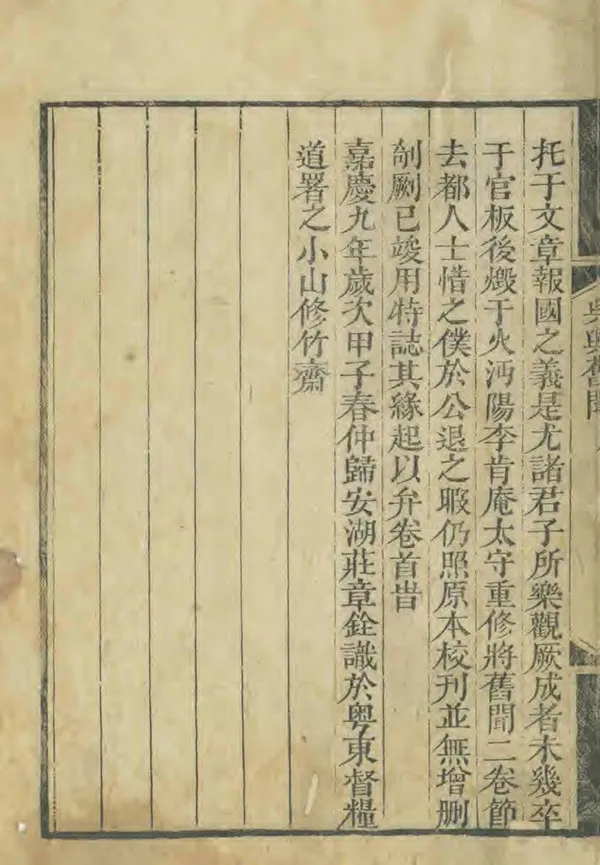 吳興舊聞
托于文章報國之義是尤諸君子所樂觀厥成者未幾卒
于官板後燬于火沔陽李肯庵太守重修將舊聞二卷節
去都人士惜之僕於公退之暇仍照原本校刊並無增刪
剞劂已竣用特誌其緣起以弁卷首旹
嘉慶九年歲次甲子春仲歸安湖莊章銓識於粵東督糧
道署之小山修竹齋